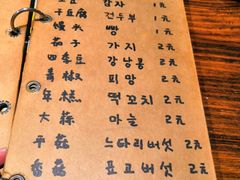 土豆 감자 1元
干豆腐 건두부 1元
馒头 빵 1元
茄子 가지 2元
四季豆 강낭콩 2元
青椒 피망 2元
年糕 떡꼬치 2元
大蒜 마늘 2元
平菇 느타리버섯 2元
香菇 표고버섯 2元